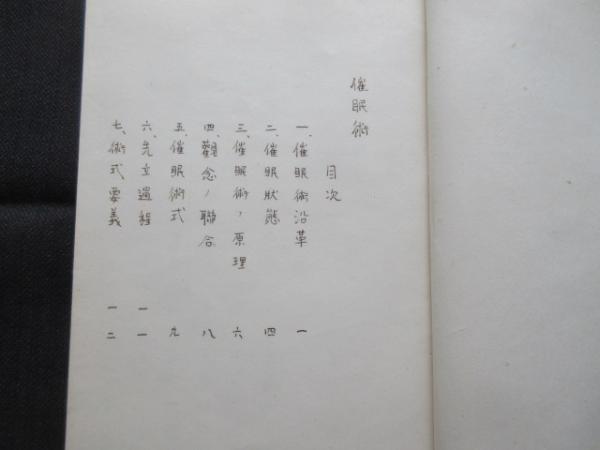 催眠術
目次
一、催眠術沿革 一
二、催眠狀態 四
三、催眠術ノ原理 六
四、觀念ノ聯合 八
五、催眠術式 九
六、先立過程 一一
七、術式要義 一二